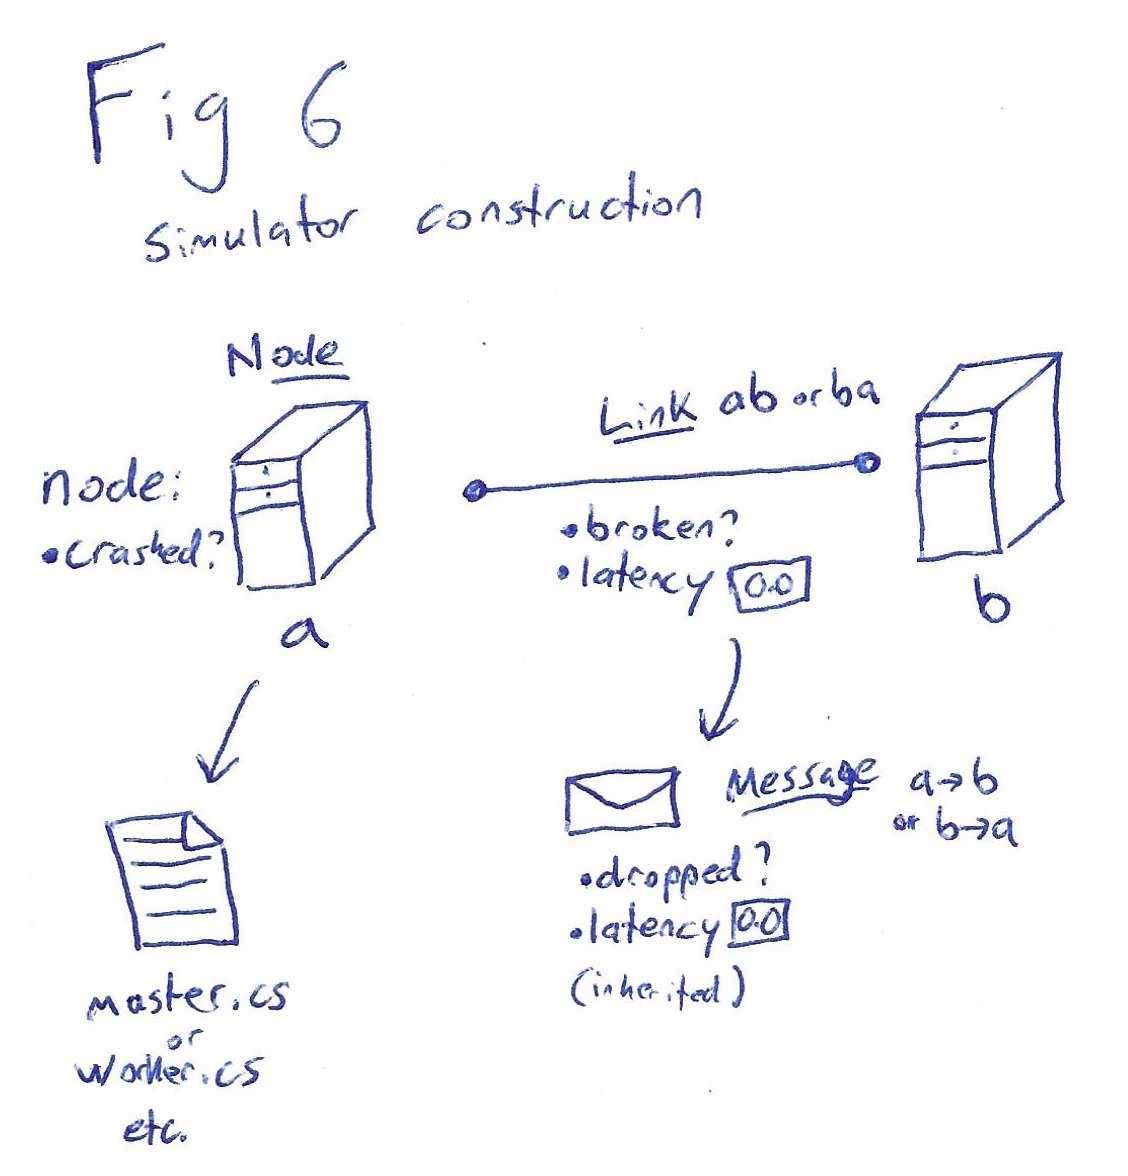 Fig 6
Simulator construction
Node
node:
•crashed?
a
Link ab or ba
•broken?
•latency 0.0
b
master.cs
or
worker.cs
etc.
Message a→b
or b→a
•dropped?
•latency 0.0
(inherited)